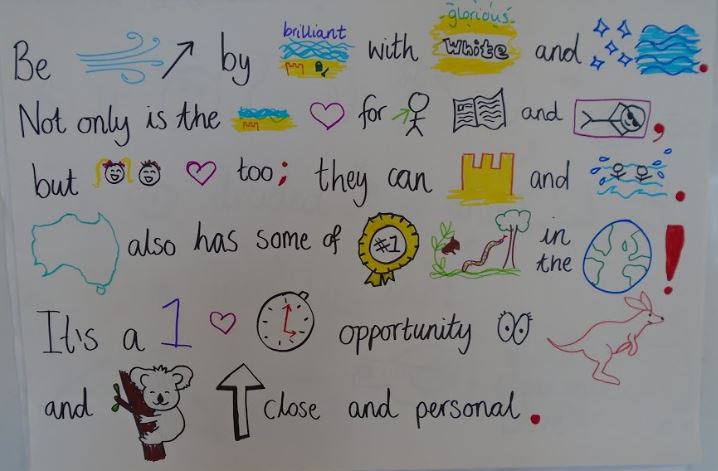 Be by brilliant with glorious white and .
Not only is the for and ,
but too; they can and .
also has some of #1 in the !
It's a 1 opportunity
and close and personal.